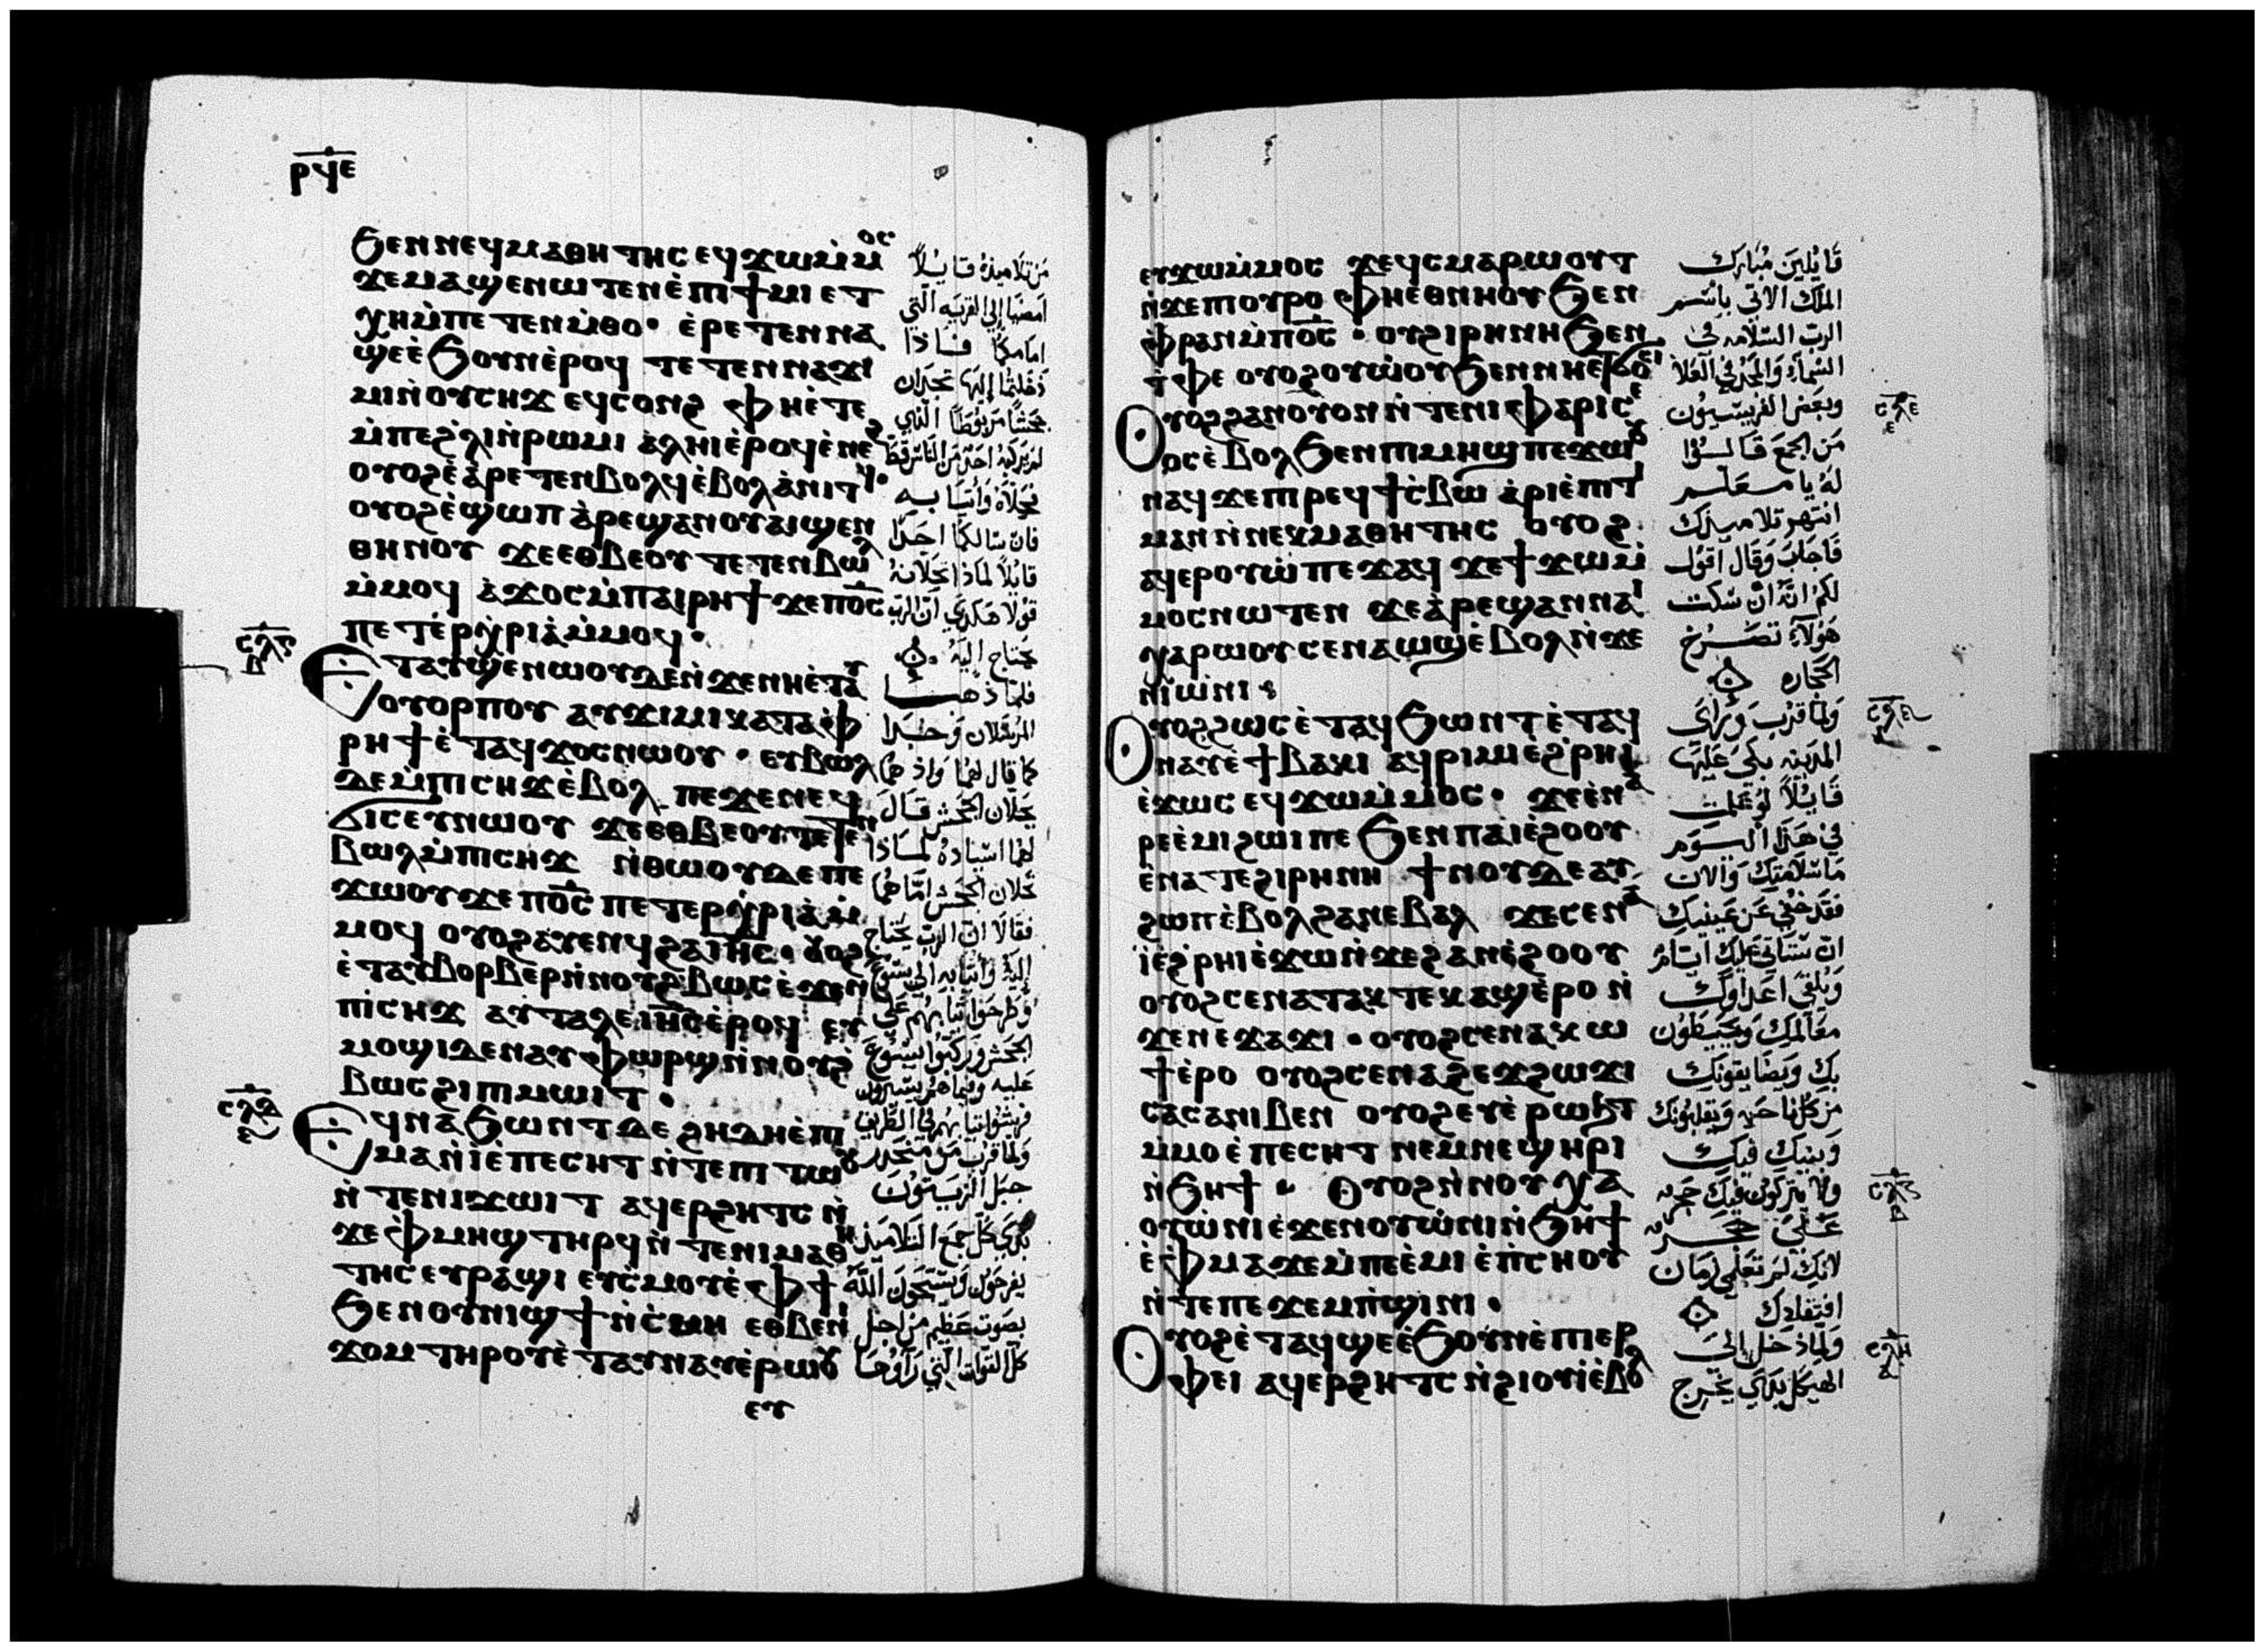 ⲣϥⲉ
ϧⲉⲛⲛⲉϥⲙⲁⲑⲏⲧⲏⲥ ⲉϥϫⲱⲙ̇ⲙ̇ⲟⲥ
ϫⲉⲙⲁϣⲉⲛⲱⲧⲉⲛⲉ̇ⲡⲓϯⲙⲓ ⲉⲧ
ⲭⲏⲙ̇ⲡⲉⲧⲉⲛⲙ̇ⲑⲟ· ⲉ̇ⲣⲉⲧⲉⲛⲛⲁ
ϣⲉⲉ̇ϧⲟⲩⲛⲉ̇ⲣⲟϥ ⲧⲉⲧⲉⲛⲛⲁϫⲓ
ⲙⲓⲛ̇ⲟⲩⲥⲏϫ ⲉϥⲥⲟⲛϩ ⲫⲏⲉ̇ⲧⲉ
ⲙ̇ⲡⲉϩ̇ⲗⲓⲛ̇ⲣⲱⲙⲓ ⲁ̇ⲗⲏⲓⲉ̇ⲣⲟϥⲉ̇ⲛⲉϩ
ⲟⲩⲟϩⲉ̇ⲁ̇ⲣⲉⲧⲉⲛⲃⲟⲗϥⲉ̇ⲃⲟⲗⲁ̇ⲛⲓⲧϥ·
ⲟⲩⲟϩⲉ̇ϣⲱⲡ ⲁ̇ⲣⲉϣⲁⲛⲟⲩⲁⲓϣⲉⲛ
ⲑⲏⲛⲟⲩ ϫⲉⲉⲑⲃⲉⲟⲩ ⲧⲉⲧⲉⲛⲃⲱⲗ
ⲙ̇ⲙⲟϥ ⲁ̇ϫⲟⲥⲙ̇ⲡⲁⲓⲣⲏϯ ϫⲉⲡⲟ̅ⲥ̅
ⲡⲉⲧⲉ̇ⲣⲭ̇ⲣⲓⲁ̇ⲙ̇ⲙⲟϥ·
ⲥⲗⲋ
ⲇ
Ⲉⲧⲁⲩϣⲉⲛⲱⲟⲩⲇⲉⲛ̇ϫⲉⲛⲏⲉ̇ⲧⲁⲩ
ⲟⲩⲟⲣⲡⲟⲩ ⲁⲩϫⲓⲙⲓ ⲕⲁⲧⲁⲫ̇
ⲣⲏϯ ⲉ̇ⲧⲁϥϫⲟⲥⲛⲱⲟⲩ · ⲉⲩⲃⲱⲗ
ⲇⲉⲙ̇ⲡⲓⲥⲏϫⲉ̇ⲃⲟⲗ ⲡⲉϫⲉⲛⲉϥ
ϭⲓⲥⲉⲩⲛⲱⲟⲩ ϫⲉⲉⲑⲃⲉⲟⲩⲧⲉⲧⲉⲛ
ⲃⲱⲗⲙ̇ⲡⲓⲥⲏϫ ⲛ̇ⲑⲱⲟⲩⲇⲉⲡⲉ
ϫⲱⲟⲩϫⲉⲡⲟ̅ⲥ̅ ⲡⲉⲧⲉⲣⲭ̇ⲣⲓⲁ̇ⲙ̇
ⲙⲟϥ ⲟⲩⲟϩⲁⲩⲉⲛϥϩⲁⲓⲏ̅ⲥ̅· ⲟⲩⲟϩ
ⲉ̇ⲧⲁⲩⲃⲟⲣⲃⲉⲣⲛ̇ⲛⲟⲩϩ̇ⲃⲱⲥⲉ̇ϫⲉⲛ
ⲡⲓⲥⲏϫ ⲁⲩⲧⲁⲗⲉⲓⲏ̅ⲥ̅ⲉ̇ⲣⲟϥ ⲉⲩ
ⲙⲟϣⲓⲇⲉⲛⲁⲩⲫⲱⲣϣⲛ̇ⲛⲟⲩϩ̇
ⲃⲱⲥϩⲓⲡⲓⲙⲱⲓⲧ·
ⲥⲗⲇ
Ⲉϥⲛⲁϧⲱⲛⲧⲇⲉ ϩⲏⲇⲏⲉ̇ⲡⲓ
ⲙⲁⲛ̇ⲓ̇ⲉ̇ⲡⲉⲥⲏⲧ ⲛ̇ⲧⲉⲡⲓⲧⲱⲟⲩ
ⲛ̇ⲧⲉⲛⲓϫⲱⲓⲧ ⲁϥⲉⲣϩⲏⲧⲥ ⲛ̇
ϫⲉ ⲫ̇ⲙⲏϣ ⲧⲏⲣϥ ⲛ̇ⲧⲉⲛⲓⲙⲁⲑⲏ
ⲧⲏⲥ ⲉⲩⲣⲁϣⲓ ⲉⲩⲥ̇ⲙⲟⲩⲉ̇ⲫϯ
ϧⲉⲛⲟⲩⲛⲓϣϯⲛ̇ⲥ̇ⲙⲏ ⲉⲑⲃⲉⲛⲓ
ϫⲟⲙ ⲧⲏⲣⲟⲩⲉ̇ⲧⲁⲩⲛⲁⲩⲉ̇ⲣⲱⲟⲩ
ⲉⲩ
من تلاميذه قايلا
امضيا الى القرية التي
امامكما فاذا
دخلتما اليها تجدان
جحشا مربوطا الذي
لم يركبه احد من الناس قط
فحلاه وأتيا به
فان سالكما احدا
قايلا لماذا تحلانه
قولا هكذي ان الرب
يحتاج اليه
فلما ذهبا
المرسلان وجدا
كما قال لهما واذ هما
يحلان الجحش قال
لهما اسياده لماذا
تحلان الجحش اما هما
فقالا ان الرب يحتاج
اليه وأتيا به الى يسوع
وطرحوا ثيابهم على
الجحش وركبوا يسوع
عليه وفيما هم يسيرون
فرشوا ثيابهم في الطريق
ولما قرب من منحدر
جبل الزيتون
بدي كل جمع التلاميذ
يفرحون ويسبحون الله
بصوت عظيم من اجل
كل القوات التي رأوها
ⲉⲩϫⲱⲙ̇ⲙⲟⲥ ϫⲉϥⲥⲙⲁⲣⲱⲟⲩⲧ
ⲛ̇ϫⲉⲡⲟⲩⲣⲟ ⲫⲏⲉ̇ⲑⲛⲏⲟⲩ ϧⲉⲛ
ⲫ̇ⲣⲁⲛⲙ̇ⲡⲟ̅ⲥ̅· ⲟⲩϩⲓⲣⲏⲛⲏ ϧⲉⲛ
ⲧ̇ⲫⲉ ⲟⲩⲟϩⲟⲩⲱ̇ⲟⲩ ϧⲉⲛⲛⲏⲉⲧϭⲟⲥⲓ
Ⲟⲩⲟϩϩⲁⲛⲟⲩⲟⲛ ⲛ̇ⲧⲉⲛⲓⲫⲁⲣⲓⲥⲉ
ⲟⲥⲉ̇ⲃⲟⲗϧⲉⲛⲡⲓⲙⲏϣ ⲡⲉϫⲱⲟⲩ
ⲛⲁϥ ϫⲉⲡⲓⲣⲉϥϯⲥ̇ⲃⲱ ⲁ̇ⲣⲓⲉ̇ⲡⲓⲧⲓ
ⲙⲁⲛ ⲛ̇ⲛⲉⲕⲙⲁⲑⲏⲧⲏⲥ ⲟⲩⲟϩ
ⲁϥⲉⲣⲟⲩⲱ̇ ⲡⲉϫⲁϥ ϫⲉϯϫⲱⲙ̇
ⲙⲟⲥⲛⲱⲧⲉⲛ ϫⲉⲁ̇ⲣⲉϣⲁⲛⲛⲁⲓ
ⲭⲁⲣⲱⲟⲩ ⲥⲉⲛⲁⲱϣⲉ̇ⲃⲟⲗⲛ̇ϫⲉ
ⲛⲓⲱ̇ⲛⲓ
Ⲟⲩⲟϩϩⲱⲥⲉ̇ⲧⲁϥϧⲱⲛⲧ ⲉ̇ⲧⲁϥ
ⲛⲁⲩⲉ̇ϯⲃⲁⲕⲓ ⲁϥⲣⲓⲙⲓⲉ̇ϩ̇ⲣⲏⲓ
ⲉ̇ϫⲱⲥ ⲉϥϫⲱⲙ̇ⲙⲟⲥ· ϫⲉⲉ̇ⲛⲁ
ⲣⲉⲉ̇ⲙⲓϩⲱⲓⲡⲉ ϧⲉⲛⲡⲁⲓⲉ̇ϩⲟⲟⲩ
ⲉ̇ⲛⲁⲧⲉϩⲓⲣⲏⲛⲏ ϯⲛⲟⲩⲇⲉⲁⲩ
ϩⲱⲡⲉ̇ⲃⲟⲗϩⲁⲛⲉⲃⲁⲗ ϫⲉⲥⲉⲛⲁ
ⲓ̇ⲉ̇ϩ̇ⲣⲏⲓⲉ̇ϫⲱⲛ̇ϫⲉϩⲁⲛⲉ̇ϩⲟⲟⲩ
ⲟⲩⲟϩⲥⲉⲛⲁⲧⲁⲕⲧⲉⲕⲁϣⲉ̇ⲣⲟ ⲛ̇
ϫⲉⲛⲉϫⲁϫⲓ· ⲟⲩⲟϩⲥⲉⲛⲁⲭⲱ
ϯⲉ̇ⲣⲟ ⲟⲩⲟϩⲥⲉⲛⲁϩⲉϫϩⲱϫⲓ
ⲥⲁⲥⲁⲛⲓⲃⲉⲛ ⲟⲩⲟϩⲉⲩⲉ̇ⲣⲱϧⲧ
ⲙ̇ⲙⲟⲉ̇ⲡⲉⲥⲏⲧ ⲛⲉⲙⲛⲉϣⲏⲣⲓ
ⲛ̇ϧⲏϯ Ⲟⲩⲟϩⲛ̇ⲛⲟⲩⲭⲁ
ⲟⲩⲱ̇ⲛⲓⲉ̇ϫⲉⲛⲟⲩⲱ̇ⲛⲓⲛ̇ϧⲏϯ
ⲉ̇ⲫ̇ⲙⲁϫⲉⲙ̇ⲡⲉⲉ̇ⲙⲓ ⲉ̇ⲡ̇ⲥⲏⲟⲩ
ⲛ̇ⲧⲉⲡⲉϫⲉⲙⲡ̇ϣⲓⲛⲓ·
Ⲟⲩⲟϩⲉ̇ⲧⲁϥϣⲉⲉ̇ϧⲟⲩⲛⲉ̇ⲡⲓⲉⲣ
ⲫⲉⲓ ⲁϥⲉⲣϩⲏⲧⲥ ⲛ̇ϩⲓⲟⲩⲓⲉ̇ⲃⲟⲗ
قايلين مبارك
الملك الاتي باسم
الرب السلامه في
السماء والمجد في العلا
وبعض الفريسيون
من الجمع قالوا
له يا معلم
انتهر تلاميذك
فاجاب وقال اقول
لكم انه ان سكت
هولاء تصرخ
الحجاره
ولما قرب وراى
المدينه بكى عليها
قايلا لو علمت
في هذا اليوم
ما سلامتك والان
فقد خفي عن عينيك
ان ستاتي عليك ايام
ويلقي اعداوك
معالمك ويحيطون
بك ويضايقونك
من كل ناحيه ويقلبونك
وبنيك فيك
ولا يتركون فيك حجر
على حجر
لانك لم تعلمي زمان
افتقادك
ولما دخل الى
الهيكل بدي يخرج
ⲥⲗⲉ
ⲥⲗⲋ
ⲥⲗⲏ